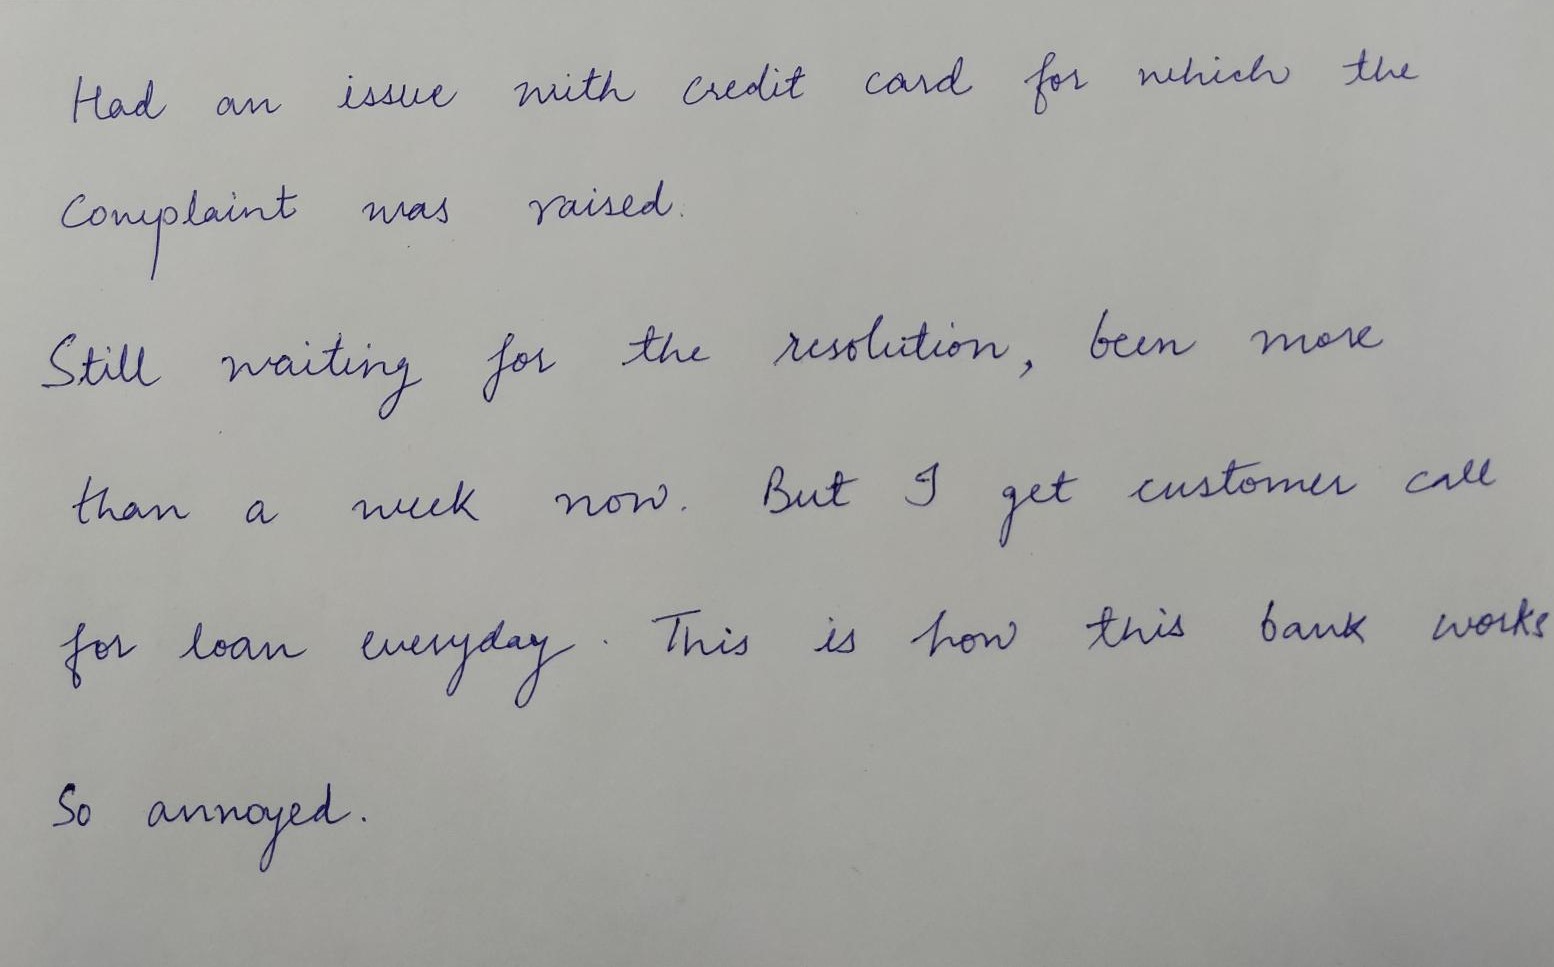 Had an issue with credit card for which the
Complaint was raised.
Still waiting for the resolution, been more
than a week now. But I get customer call
for loan everyday. This is how this bank works
So annoyed.